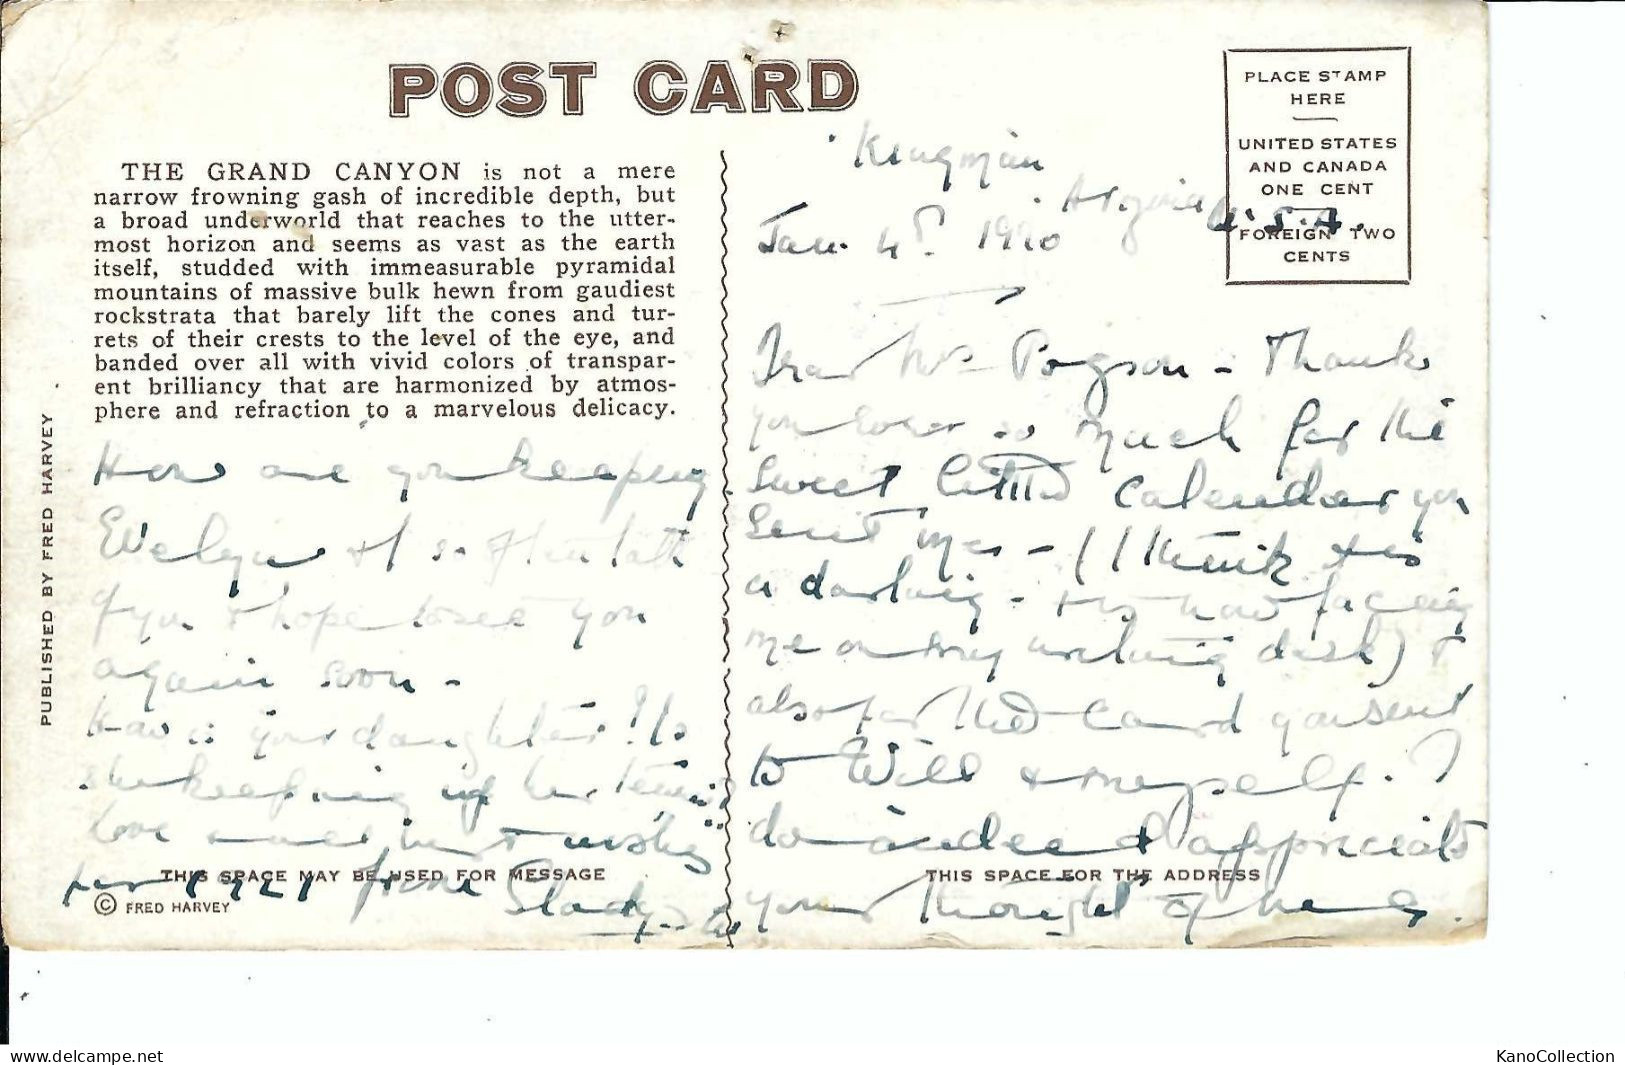 POST CARD
PLACE STAMP
HERE
UNITED STATES
AND CANADA
ONE CENT
FOREIGN TWO
CENTS
THE GRAND CANYON is not a mere
narrow frowning gash of incredible depth, but
a broad underworld that reaches to the utter-
most horizon and seems as vast as the earth
itself, studded with immeasurable pyramidal
mountains of massive bulk hewn from gaudiest
rockstrata that barely lift the cones and tur-
rets of their crests to the level of the eye, and
banded over all with vivid colors of transpar-
ent brilliancy that are harmonized by atmos-
phere and refraction to a marvelous delicacy.
PUBLISHED BY FRED HARVEY
Kingman
Arizona U.S.A.
Jan. 4th 1920
Dear Mrs Pogson - Thank
you ever so much for the
sweet little calendar you
sent me - (I think its
a darling - its now facing
me on my writing desk) &
also for the card you sent
to Will & myself. I
do indeed appreciate
your thought of me.
How are you keeping
Evelyn & I so often talk
of you & hope to see you
again soon -
How is your daughter? Is
she keeping up her tennis
Love & best wishes
for 1921 from Gladys
THIS SPACE MAY BE USED FOR MESSAGE
THIS SPACE FOR THE ADDRESS
© FRED HARVEY
www.delcampe.net
KanoCollection